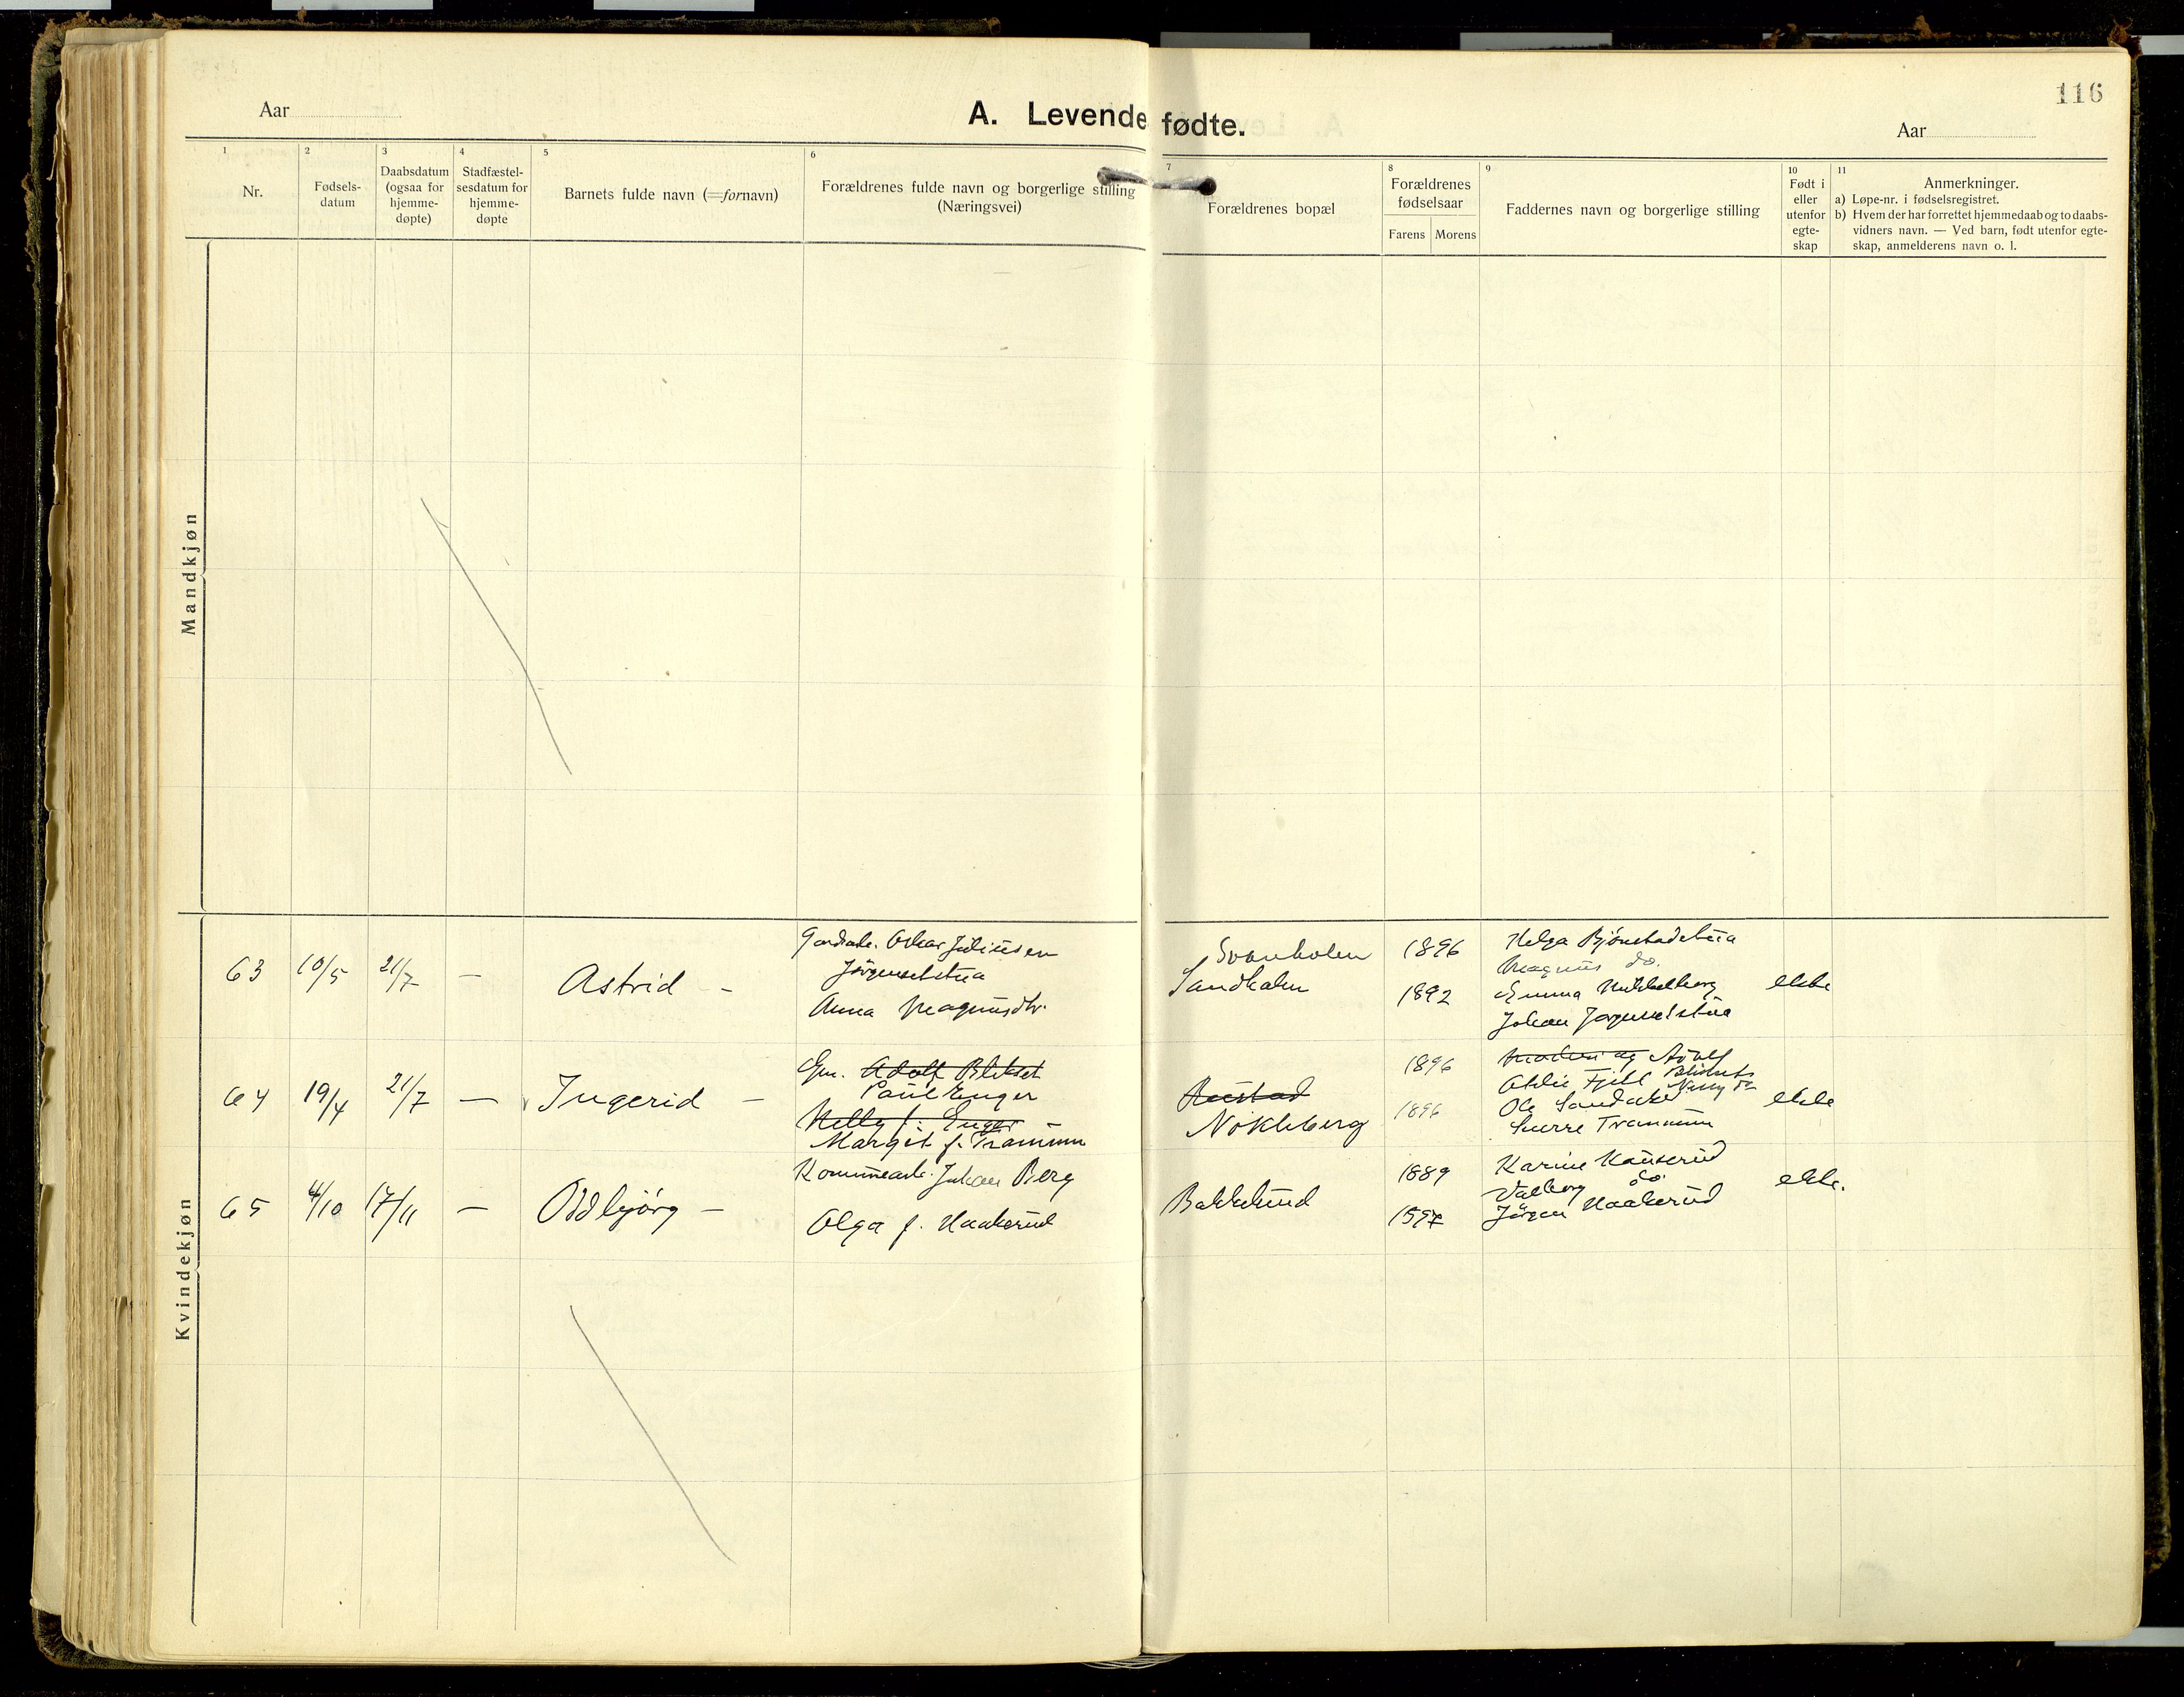 116
Aar
A. Levende fødte.
Aar
1 2 3 4 5 6 7 8 9 10 11
Nr.
Fødsels-
datum
Daabsdatum
(ogsaa for
hjemme-
døpte)
Stadfæstel-
sesdatum for
hjemme-
døpte
Barnets fulde navn (=fornavn)
Forældrenes fulde navn og borgerlige stilling
(Næringsvei)
Forældrenes bopæl
Forældrenes
fødselsaar
Farens Morens
Faddernes navn og borgerlige stilling
Født i
eller
utenfor
egte-
skap
Anmerkninger.
a) Løpe-nr. i fødselsregistret.
b) Hvem der har forrettet hjemmedaab og to daabs-
vidners navn. — Ved barn, født utenfor egte-
skap, anmelderens navn o. l.
Mandkjøn
Kvindekjøn
63 10/5 21/7 — Astrid —
Oskar Juliussen
Anna Magnusdtr.
1896
1892
Helga
Magnus do.
Emma
Johan
ekte
64 19/4 21/7 — Ingerid —
Gm. Adolf Blikset
Paul Enger
Nelly f. Enger
Margit f. Tranum
Nökleberg
1896
1896
Adolf
Ole
Sverre Tranum
ekte
65 4/10 17/11 — Oddbjörg —
Johan Berg
Olga f. Haakerud
Bakkelund
1889
1897
Karine
Valborg do.
Jörgen Haakerud
ekte.